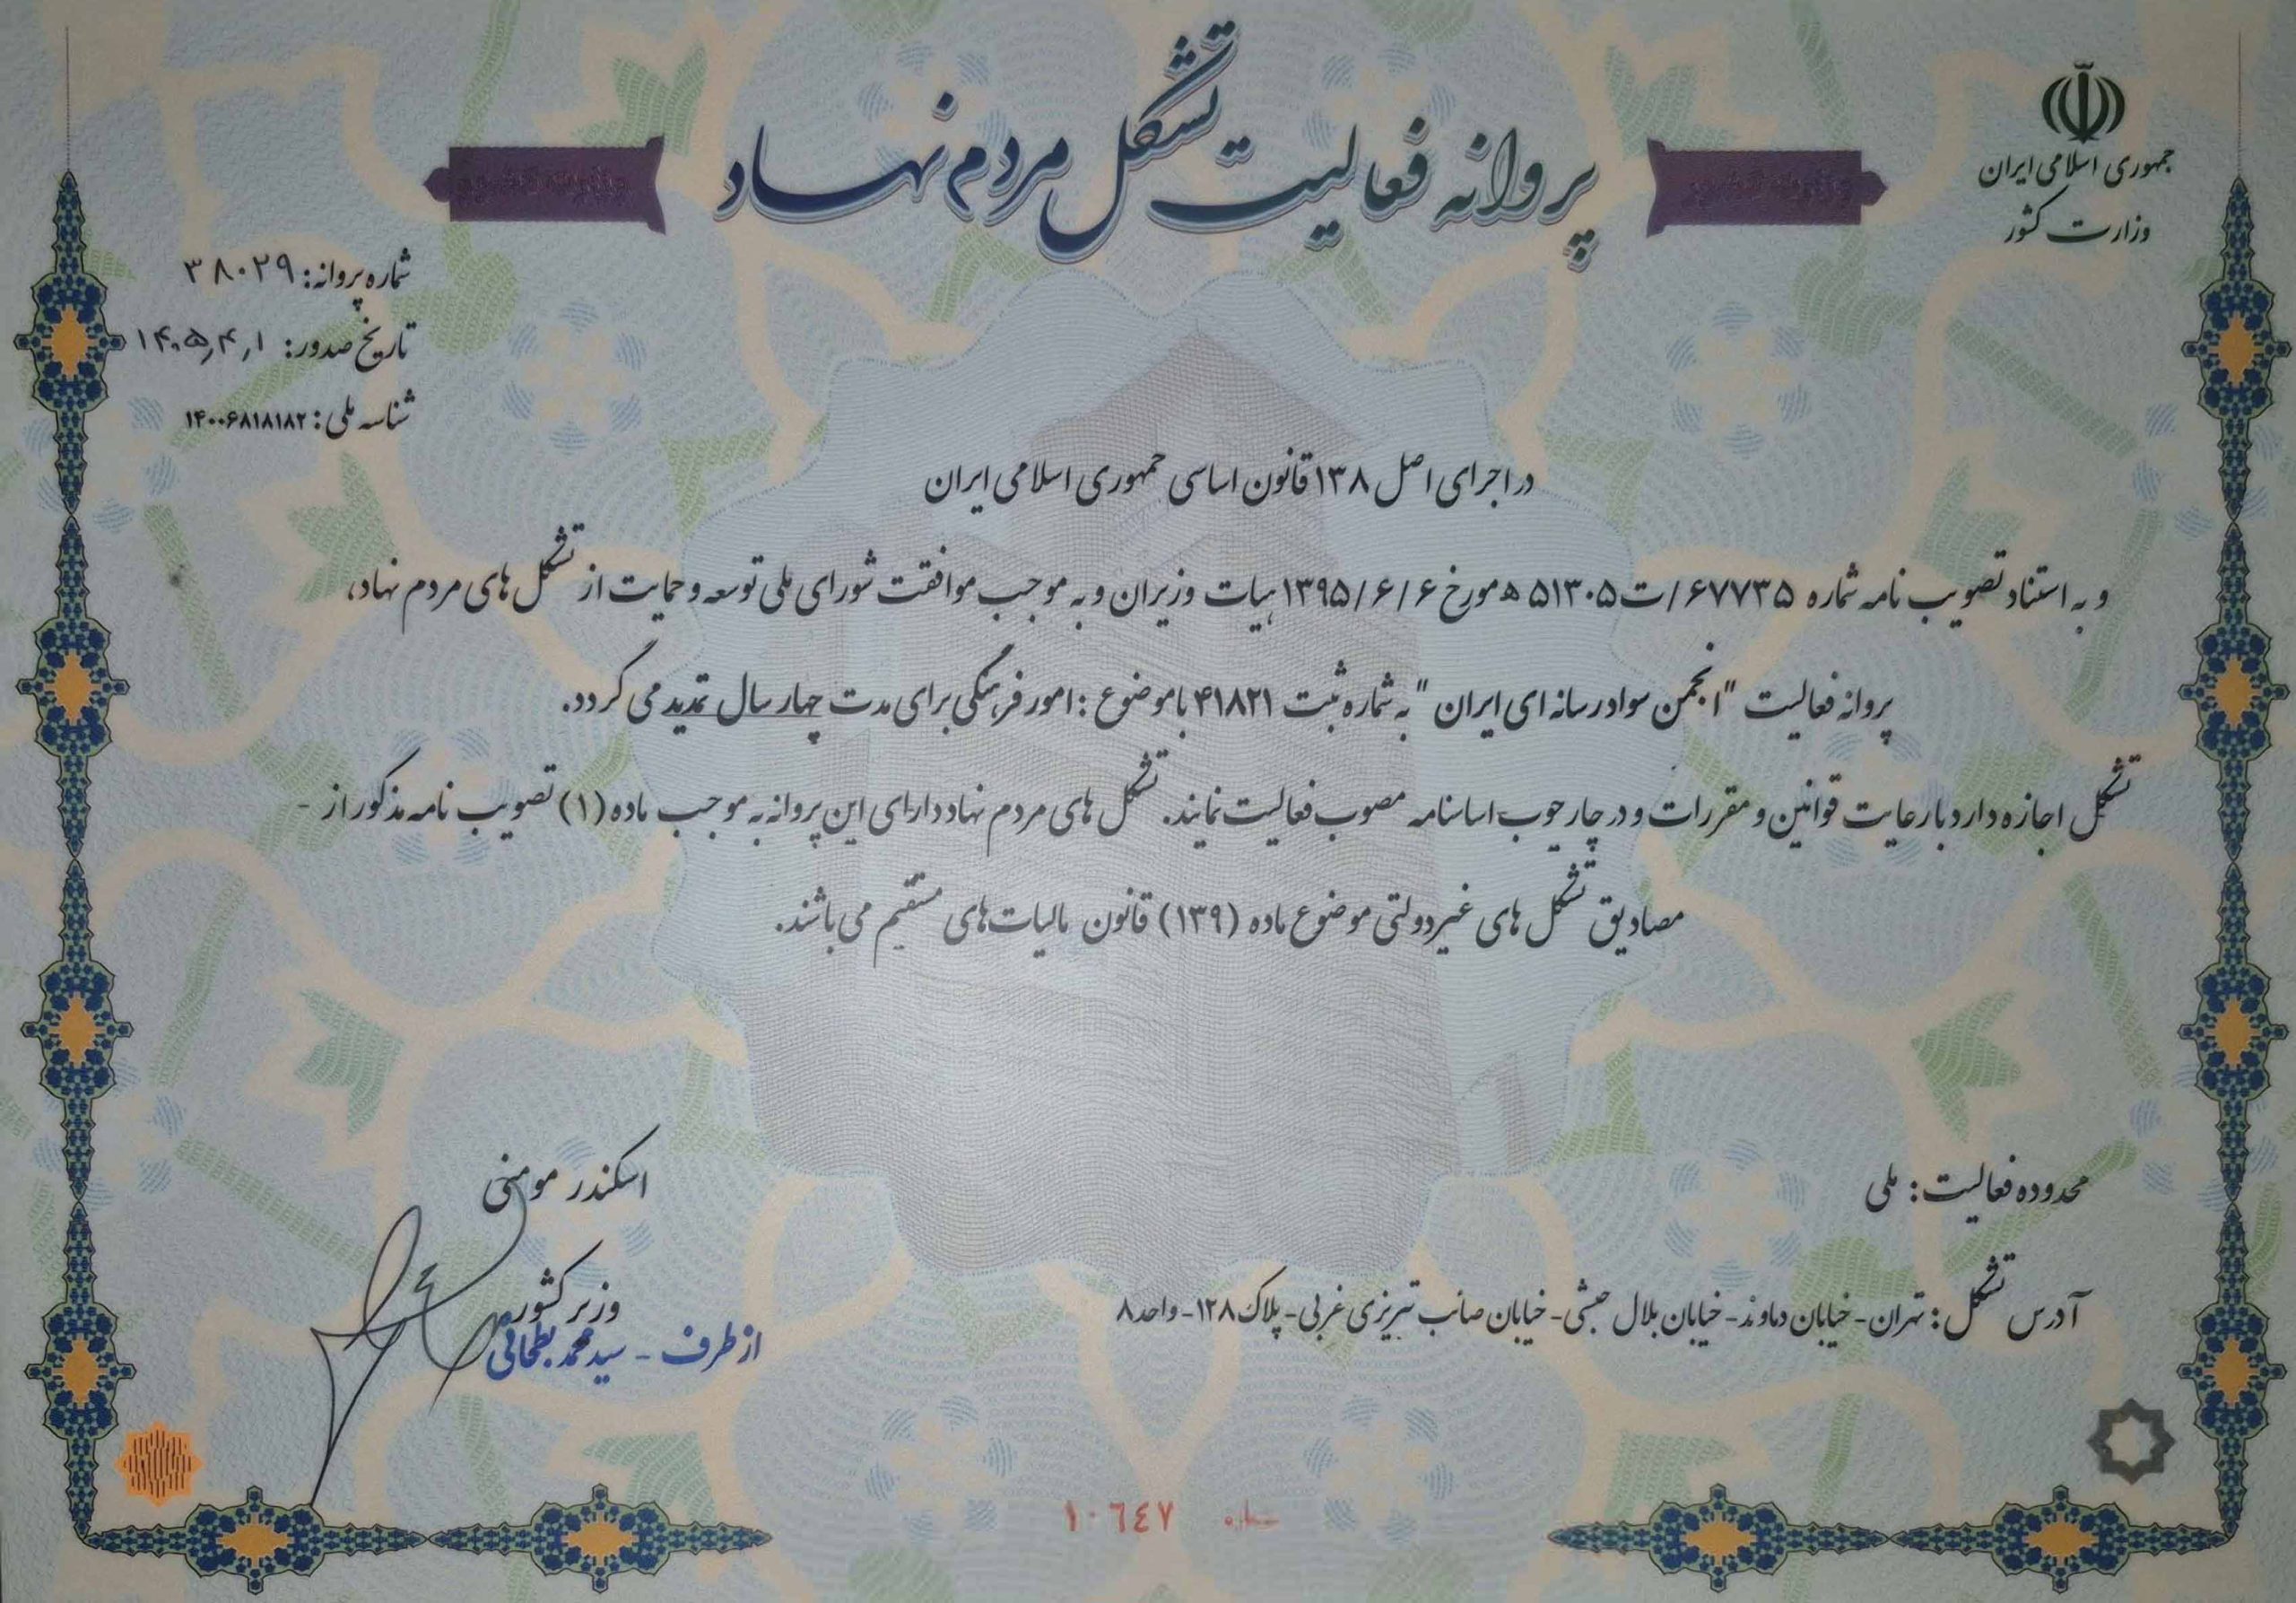 جمهوری اسلامی ایران
وزارت کشور
پروانه فعالیت تشکل مردم نهاد
شماره پروانه: ۳۸۰۲۹
تاریخ صدور: ۱۴۰۵٫۴٫۱
شناسه ملی: ۱۴۰۰۶۸۱۸۱۸۲
در اجرای اصل ۱۳۸ قانون اساسی جمهوری اسلامی ایران
و به استناد تصویب نامه شماره ۶۷۷۳۵/ت۵۱۳۰۵ ه مورخ ۱۳۹۵/۶/۶ هیات وزیران و به موجب موافقت شورای ملی توسعه و حمایت از تشکل های مردم نهاد،
پروانه فعالیت "انجمن سواد رسانه ای ایران" به شماره ثبت ۴۱۸۲۱ با موضوع: امور فرهنگی برای مدت چهار سال تمدید می گردد.
تشکل اجازه دارد با رعایت قوانین و مقررات و در چارچوب اساسنامه مصوب فعالیت نمایند. تشکل های مردم نهاد دارای این پروانه به موجب ماده (۱) تصویب نامه مذکور از -
مصادیق تشکل های غیردولتی موضوع ماده (۱۳۹) قانون مالیات های مستقیم می باشند.
محدوده فعالیت: ملی
آدرس تشکل: تهران- خیابان دماوند- خیابان بلال حبشی- خیابان صائب تبریزی غربی- پلاک ۱۲۸- واحد ۸
اسکندر مومنی
وزیر کشور
از طرف - سید محمد بطحائی
۱۰٦٤٧